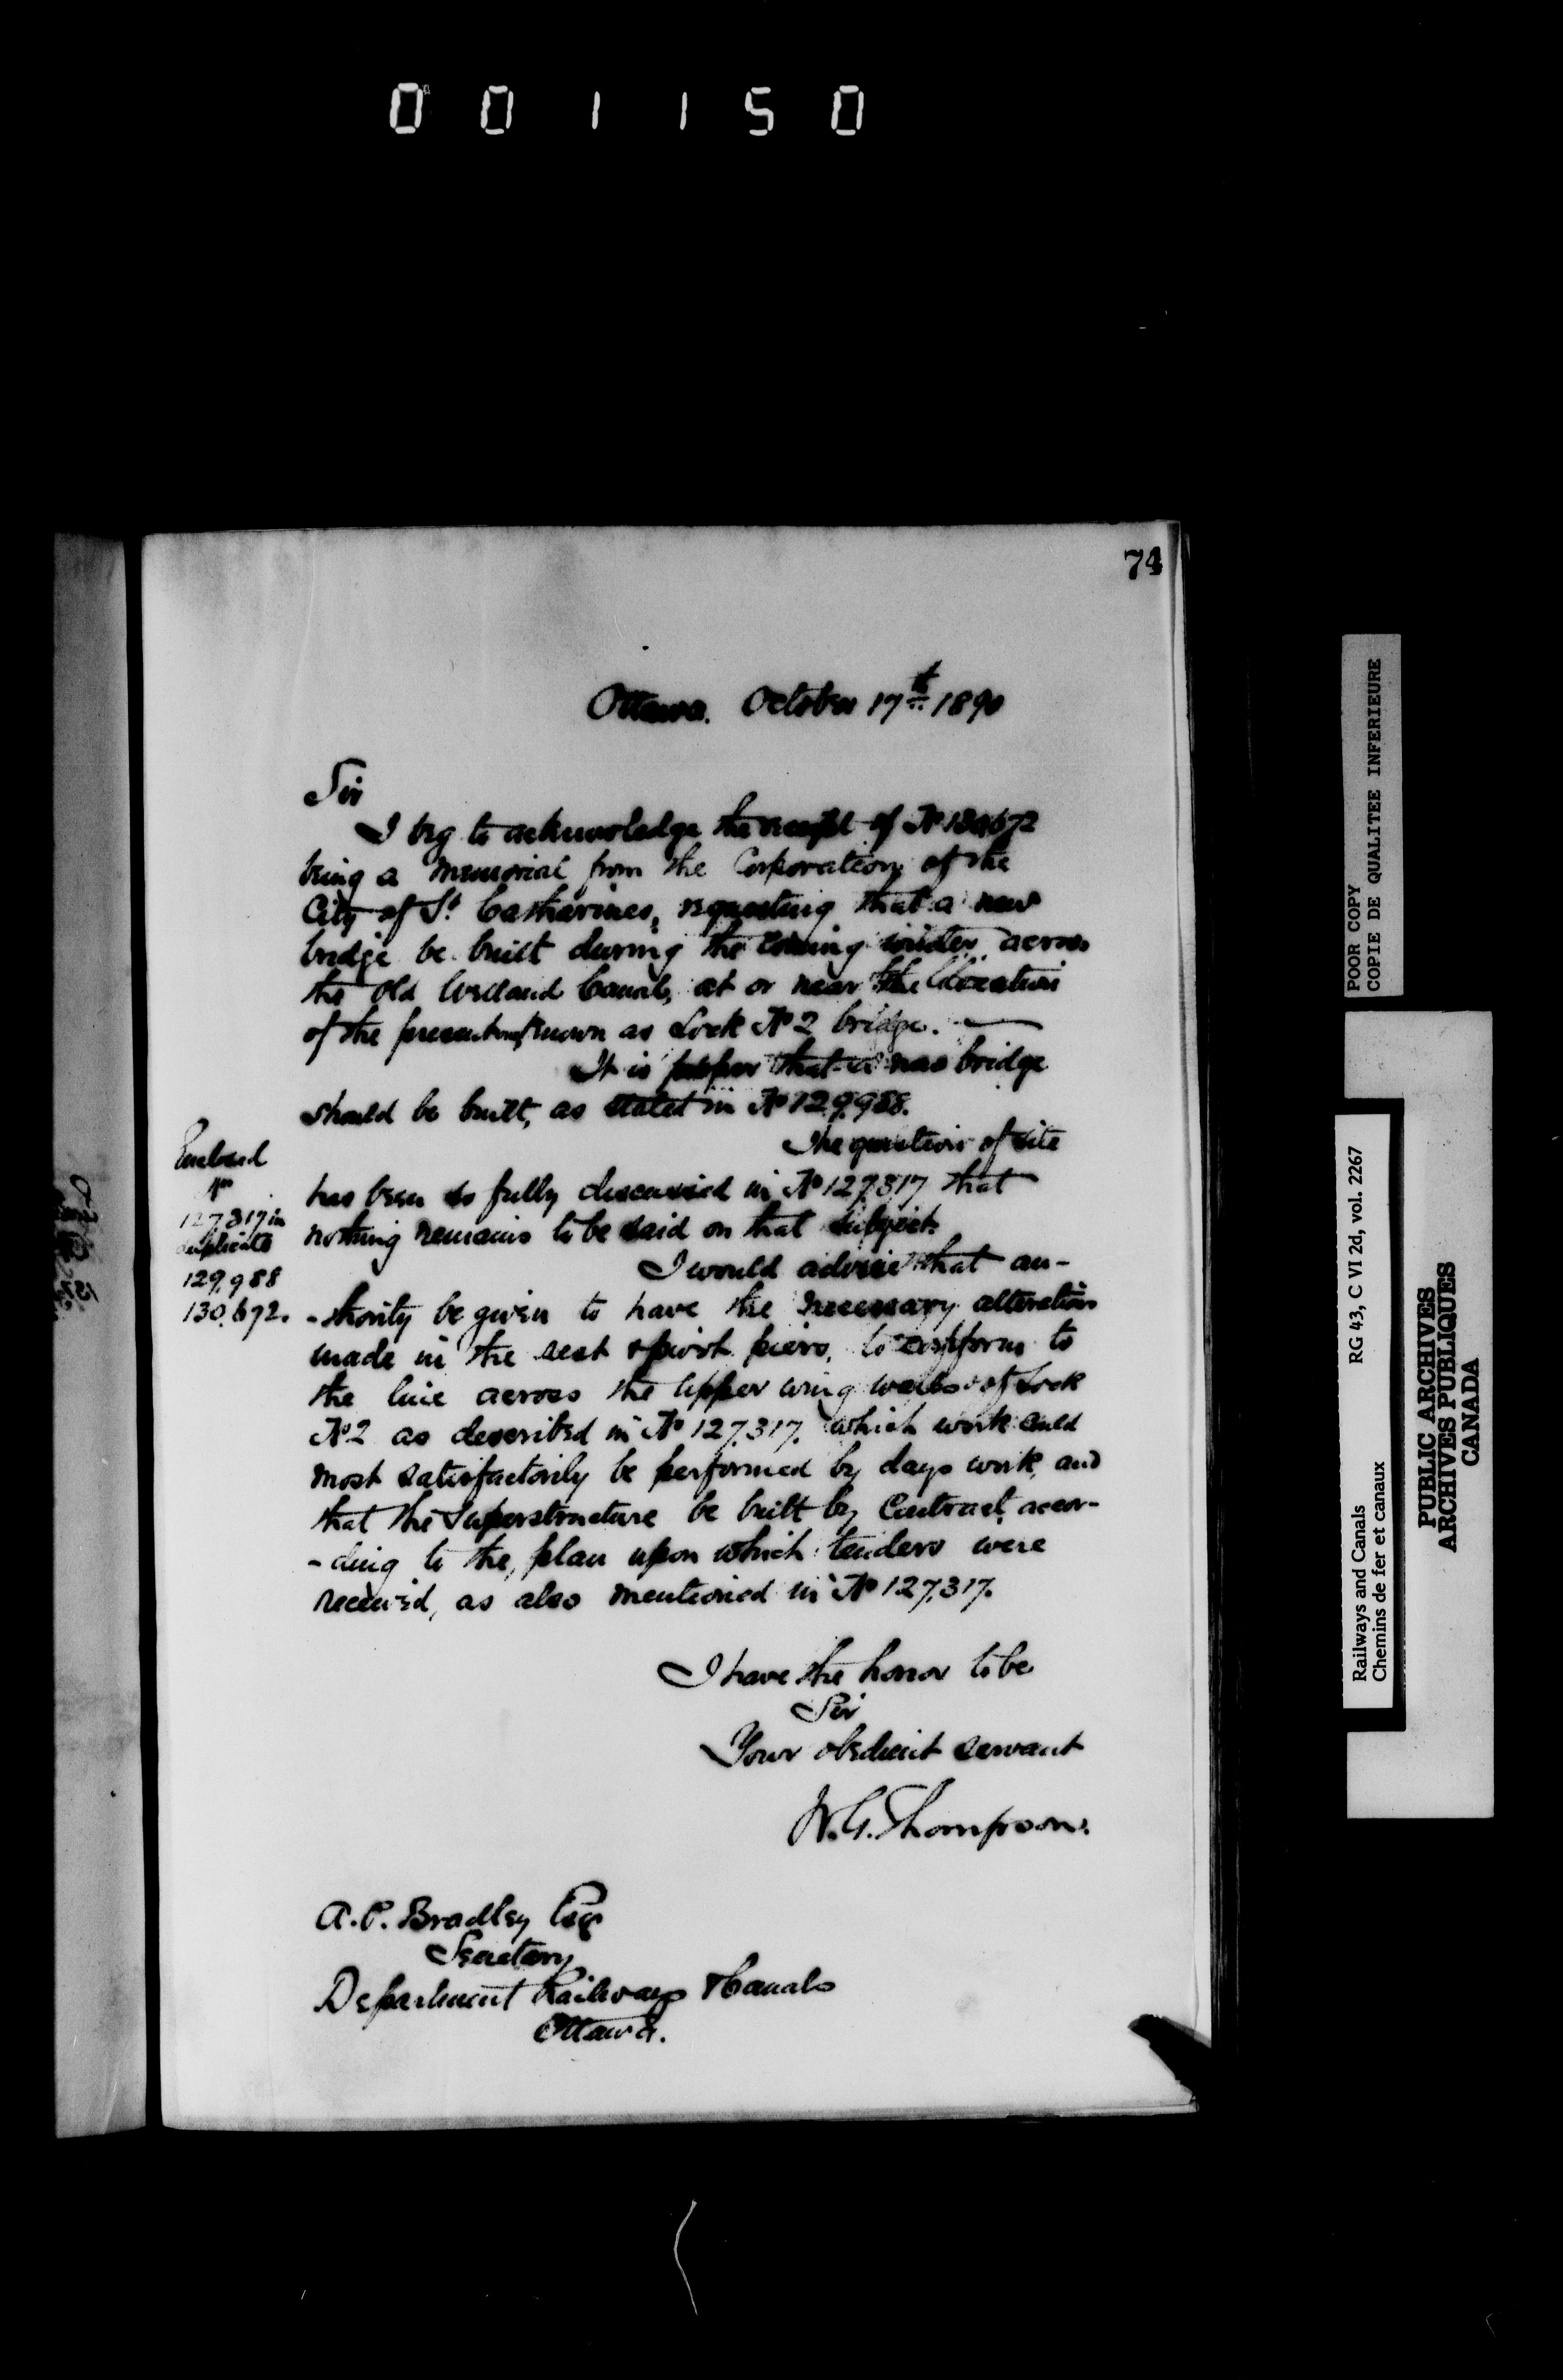 001150
74
Ottawa. October 17th 1890
Sir
I beg to acknowledge the receipt of No 130672
being a memorial from the Corporation of the
City of St Catharines, requesting that a new
bridge be built during the coming winter across
the old Welland Canal, at or near the location
of the present one known as Lock No 2 bridge.
It is proper that a new bridge
should be built, as stated in No 129,988.
The question of site
has been so fully discussed in No 127,317 that
nothing remains to be said on that subject.
I would advise that au-
-thority be given to have the necessary alteration
made in the rest & pivot piers, to conform to
the line across the upper wing walls of Lock
No 2 as described in No 127,317. which work could
most satisfactorily be performed by days work, and
that the Superstructure be built by Contract accor-
-ding to the plan upon which tenders were
received, as also mentioned in No 127,317.
Enclosed
127,317 in
duplicate
129,988
130,672.
I have the honor to be
Sir
Your obedient servant
W.G. Thompson.
A.P. Bradley Esq
Secretary
Department Railways & Canals
Ottawa.
POOR COPY
COPIE DE QUALITEE INFERIEURE
Railways and Canals RG 43, C VI 2d, vol. 2267
Chemins de fer et canaux
PUBLIC ARCHIVES
ARCHIVES PUBLIQUES
CANADA